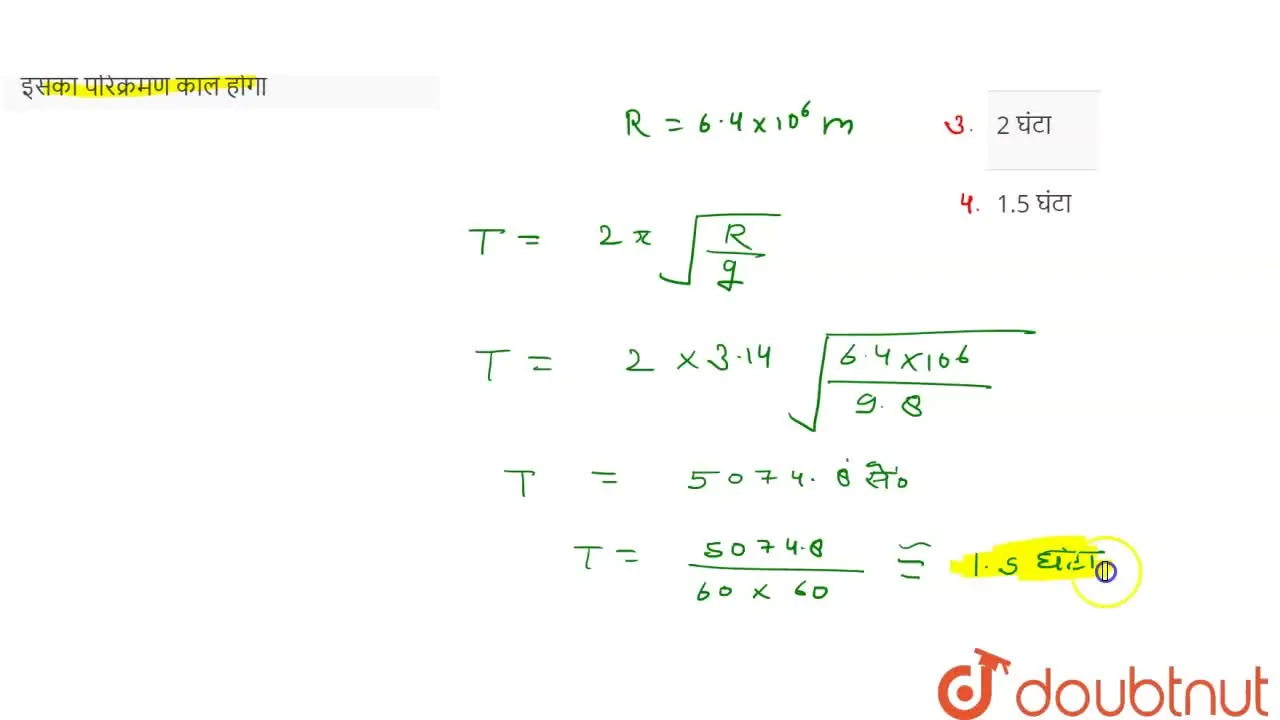 इसका परिक्रमण काल होगा
R = 6.4 × 10⁶ m
3. 2 घंटा
4. 1.5 घंटा
T = 2π √(R/g)
T = 2 × 3.14 √(6.4 × 10⁶ / 9.8)
T = 5074.8 से०
T = 5074.8 / 60 × 60 ≅ 1.5 घंटा
doubtnut